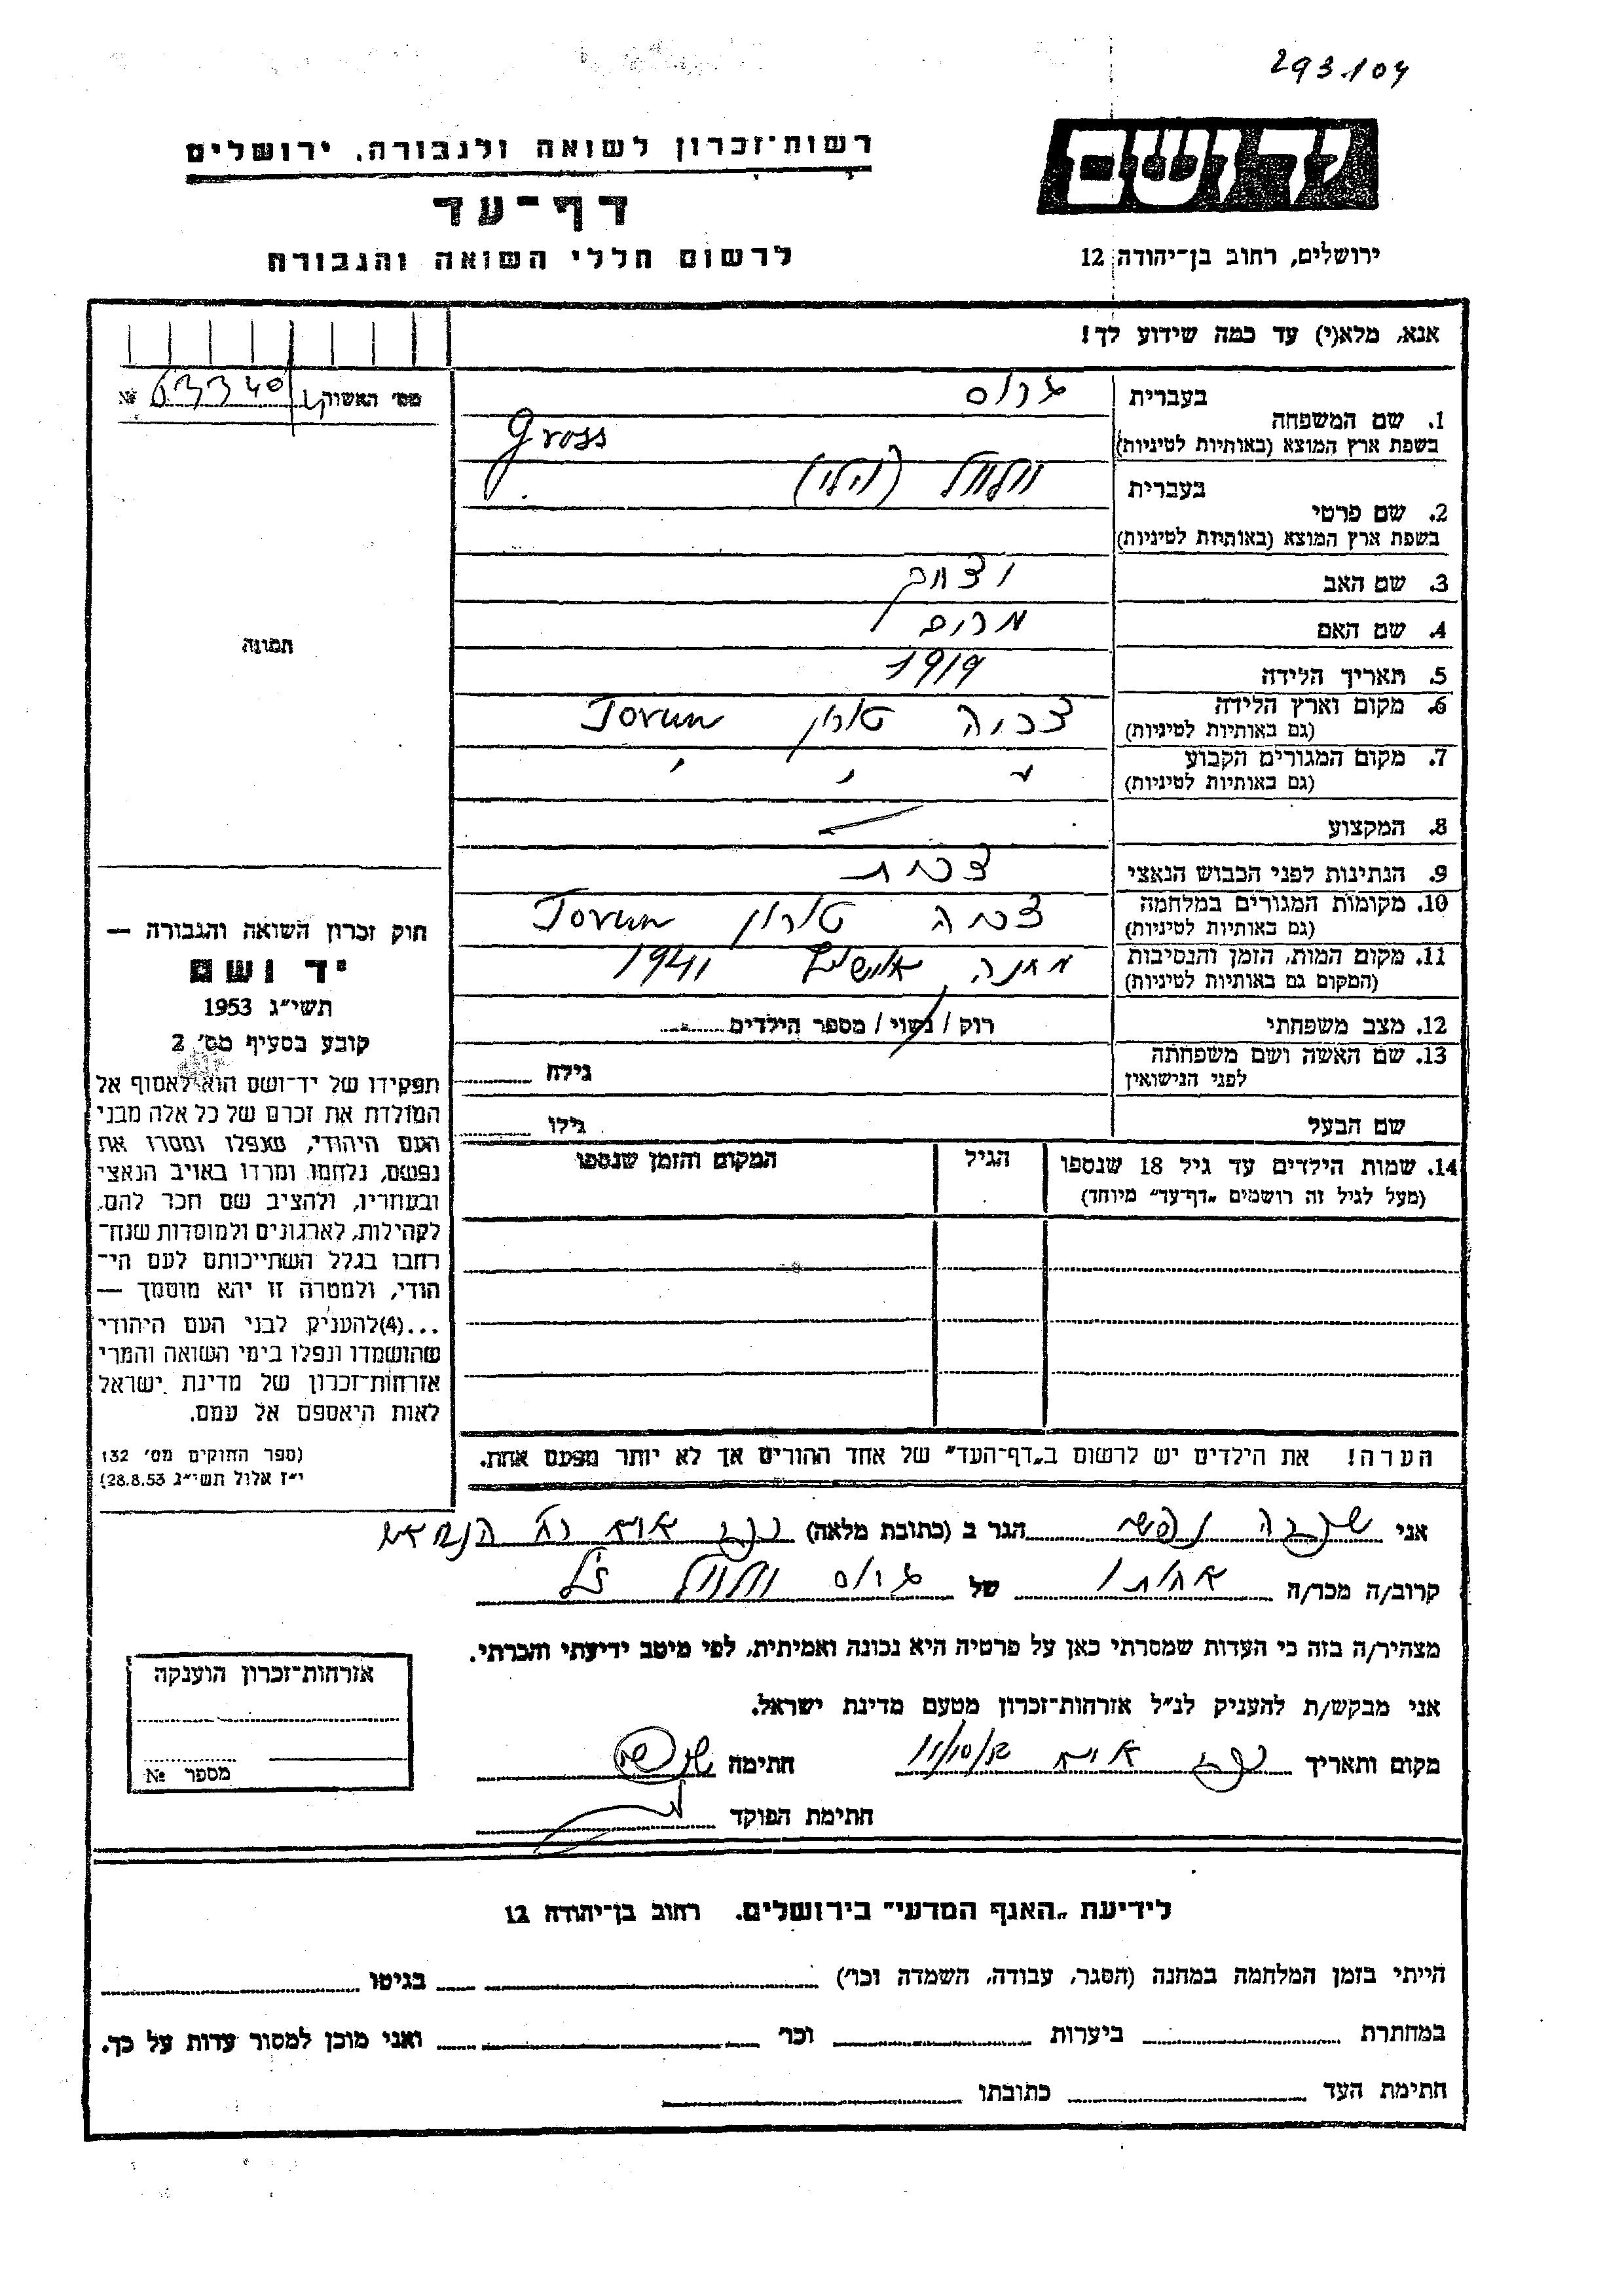 293104
יד ושם
ירושלים, רחוב בן־יהודה 12
רשות־זכרון לשואה ולגבורה, ירושלים
דף־עד
לרשום חללי השואה והגבורה
אנא, מלא(י) עד כמה שידוע לך!
מס׳ האשוה № 63340
1. שם המשפחה
בעברית גרוס
בשפת ארץ המוצא (באותיות לטיניות) Gross
2. שם פרטי
בעברית
בשפת ארץ המוצא (באותיות לטיניות)
3. שם האב יצחק
4. שם האם מרים
5. תאריך הלידה 1919
6. מקום וארץ הלידה
(גם באותיות לטיניות) טורון Torun
7. מקום המגורים הקבוע
(גם באותיות לטיניות) " " "
8. המקצוע —
9. הנתינות לפני הכבוש הנאצי
10. מקומות המגורים במלחמה
(גם באותיות לטיניות) טורון Torun
11. מקום המות, הזמן והנסיבות
(המקום גם באותיות לטיניות) מחנה 1941
12. מצב משפחתי רוק / נשוי / מספר הילדים
13. שם האשה ושם משפחתה
לפני הנישואין גילה
שם הבעל גילו
14. שמות הילדים עד גיל 18 שנספו
(מעל לגיל זה רושמים „דף־עד״ מיוחד)
הגיל
המקום והזמן שנספו
הערה! את הילדים יש לרשום ב„דף־העד״ של אחד ההורים אך לא יותר מפעם אחת.
תמונה
חוק זכרון השואה והגבורה —
יד ושם
תשי״ג 1953
קובע בסעיף מס׳ 2
תפקידו של יד־ושם הוא לאסוף אל
המולדת את זכרם של כל אלה מבני
העם היהודי, שנפלו ומסרו את
נפשם, נלחמו ומרדו באויב הנאצי
ובעוזריו, ולהציב שם וזכר להם,
לקהילות, לארגונים ולמוסדות שנח־
רחבו בגלל השתייכותם לעם הי־
הודי, ולמטרה זו יהא מוסמך —
...(4)להעניק לבני העם היהודי
שהושמדו ונפלו בימי השואה והמרי
אזרחות־זכרון של מדינת ישראל
לאות היאספם אל עמם.
(ספר החוקים מס׳ 132
י״ז אלול תשי״ג 28.8.53)
אני הגר ב (כתובת מלאה)
קרוב/ה מכר/ה אחותו של גרוס ז״ל
מצהיר/ה בזה כי העדות שמסרתי כאן על פרטיה היא נכונה ואמיתית, לפי מיטב ידיעתי והכרתי.
אני מבקש/ת להעניק לנ״ל אזרחות־זכרון מטעם מדינת ישראל.
מקום ותאריך חתימה
חתימת הפוקד
אזרחות־זכרון הוענקה
מספר №
לידיעת „האגף המדעי״ בירושלים. רחוב בן־יהודה 12
הייתי בזמן המלחמה במחנה (הסגר, עבודה, השמדה וכו׳) בגיטו
במחתרת ביערות וכו׳ ואני מוכן למסור עדות על כך.
חתימת העד כתובתו